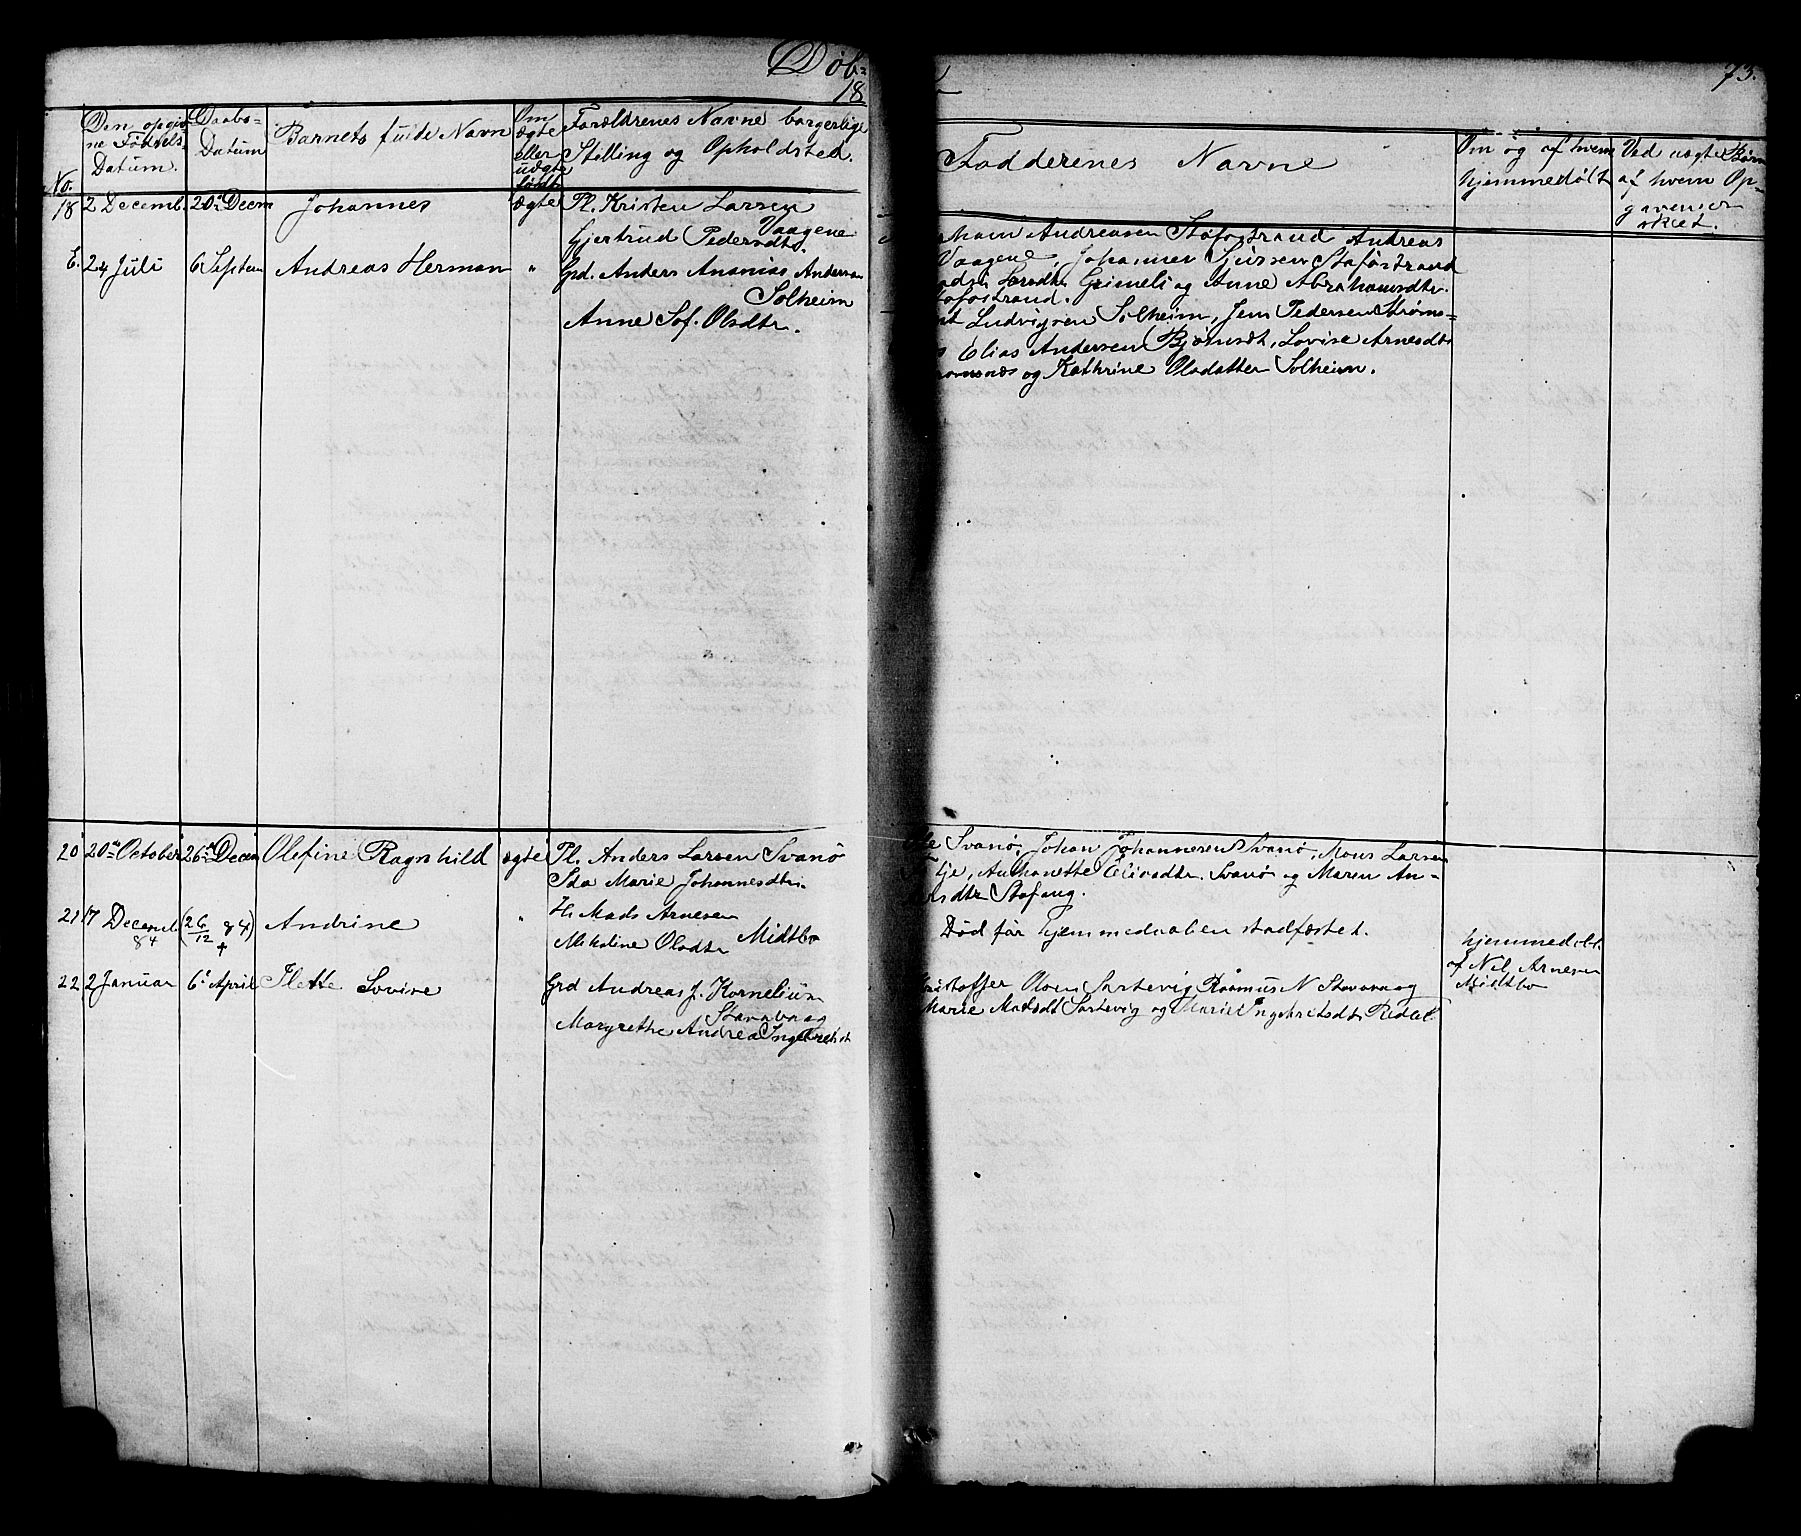 Døb=
18
73.
Den opgiv
ne Fødsels
Datum.
Daabs-
Datum
Barnets fulde Navn
Om
ægte
eller
uægte
født
Forældrenes Navne borgerlige
Stilling og Opholdsted.
Faddernes Navne
Om og af hvem
hjemmedøbt
Ved uægte Børn
af hvem Op-
gaven er
sket.
No.
18 2 Decemb. 20de Decem Johannes ægte Pl. Kristen Larsen
Vaagene
Gjertrud Pedersdtr.
Andreasen Stafostrand Andreas
Vaagene, Johannes Sjursen Stafostrand
Grimeli og Anne Abrahamsdtr.
fostrand.
E. 24 Juli 6 Septem Andreas Herman " Grd. Anders Ananias Andersen
Solheim
Anne Sof. Olsdtr.
Ludvigsen Solheim, Jens Pedersen Strøms=
Elias Andersen Lovise Arnesdtr
omsnæs og Kathrine Olsdatter Solheim.
20 20de October 26de Decem Olefine Ragnhild ægte Pl. Anders Larsen Svanø
Ida Marie Johannesdtr.
Svanø, Johan Johannesen Svanø, Mons Larsen
Svanø og Maren An-
sdtr Stafang.
21 17 Decemb. (26/12 84) Andrine " H. Mads Arnesen
84 +
Mikaline Olsdtr Midtbø
Død før hjemmedaaben stadfæstet.
hjemmedøbt
af Nil. Arnesen
Midtbø
22 2 Januar 6te April Jlette Lovise Grd Andreas J. Kornelius
Stavavaag
Margrethe Andrea Ingebretsdt
istoffer Olsen Sørtevig Rasmus N Stavavaag
Marie Matsdt Sørtevig og Marie Ingebretsdtr Rødal.